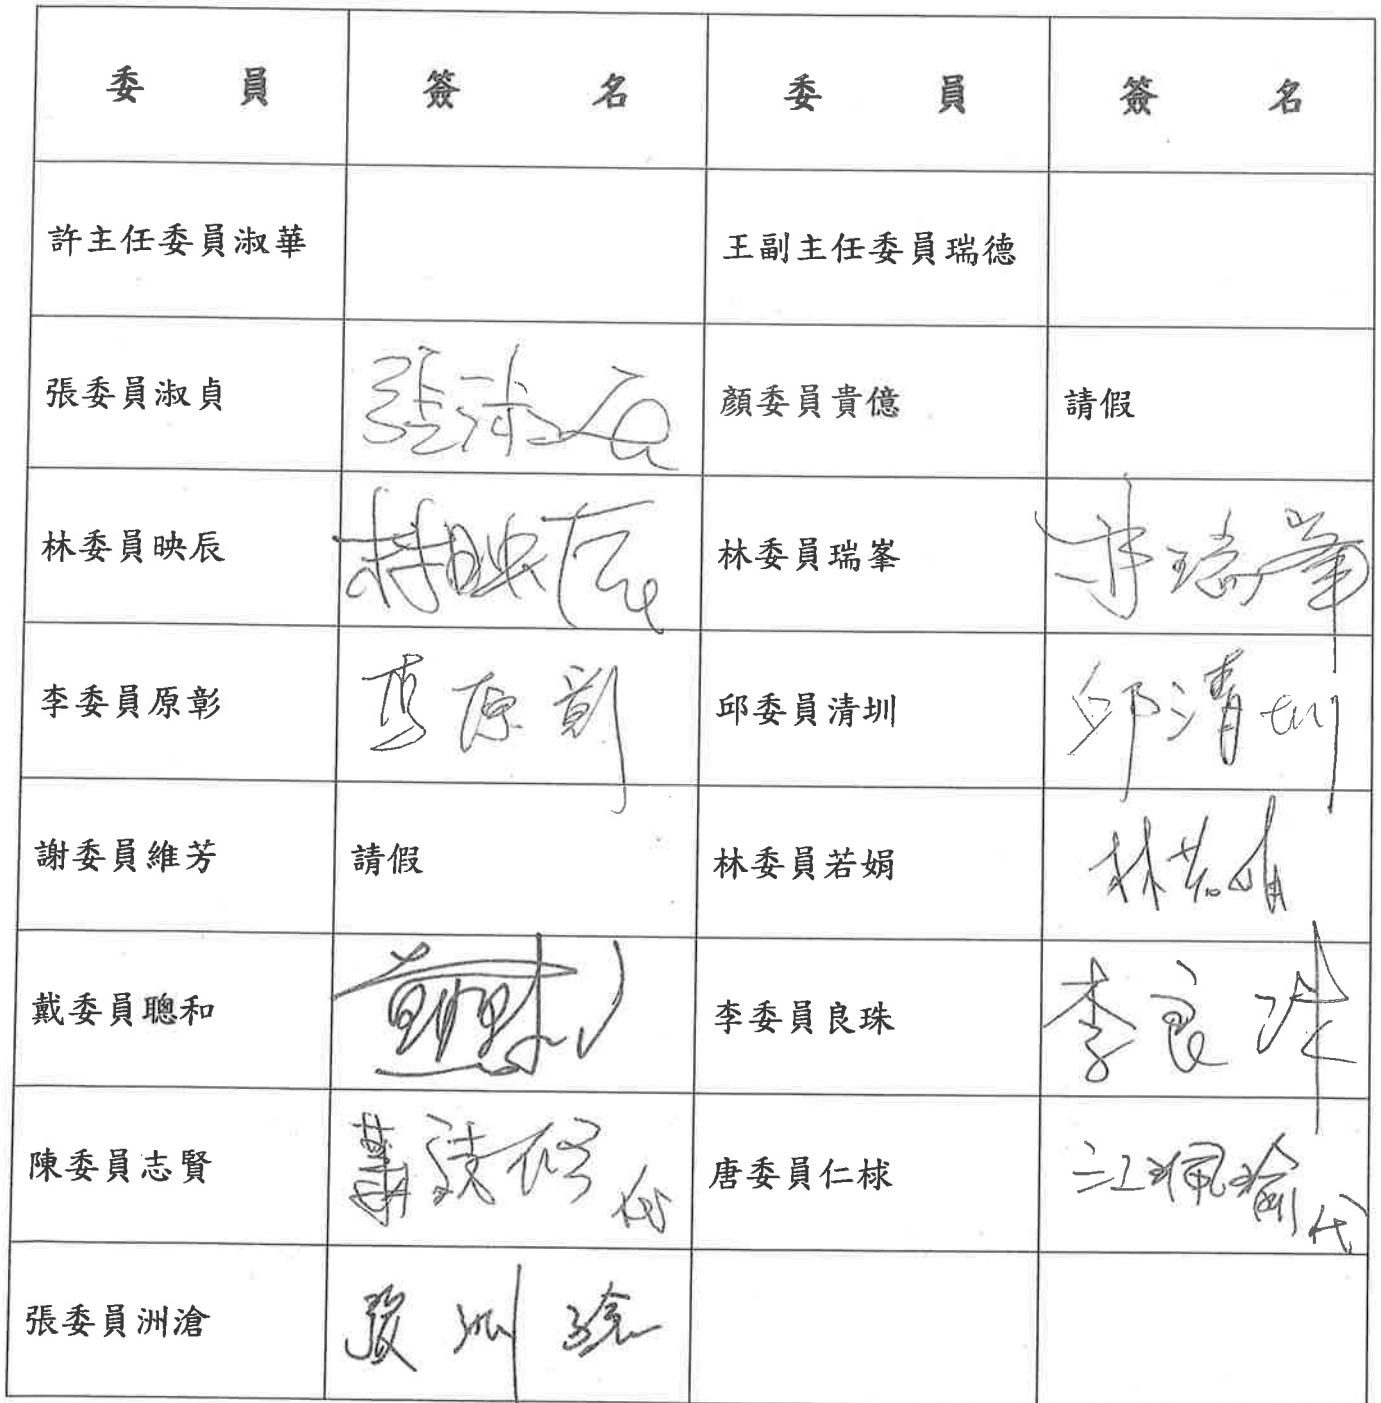 委 員 簽 名 委 員 簽 名
許主任委員淑華 王副主任委員瑞德
張委員淑貞 張淑貞 顏委員貴億 請假
林委員映辰 林映辰 林委員瑞峯 林瑞峯
李委員原彰 李原彰 邱委員清圳 邱清圳
謝委員維芳 請假 林委員若娟 林若娟
戴委員聰和 李委員良珠 李良珠
陳委員志賢 代 唐委員仁梂 江珮瑜代
張委員洲滄 張洲滄